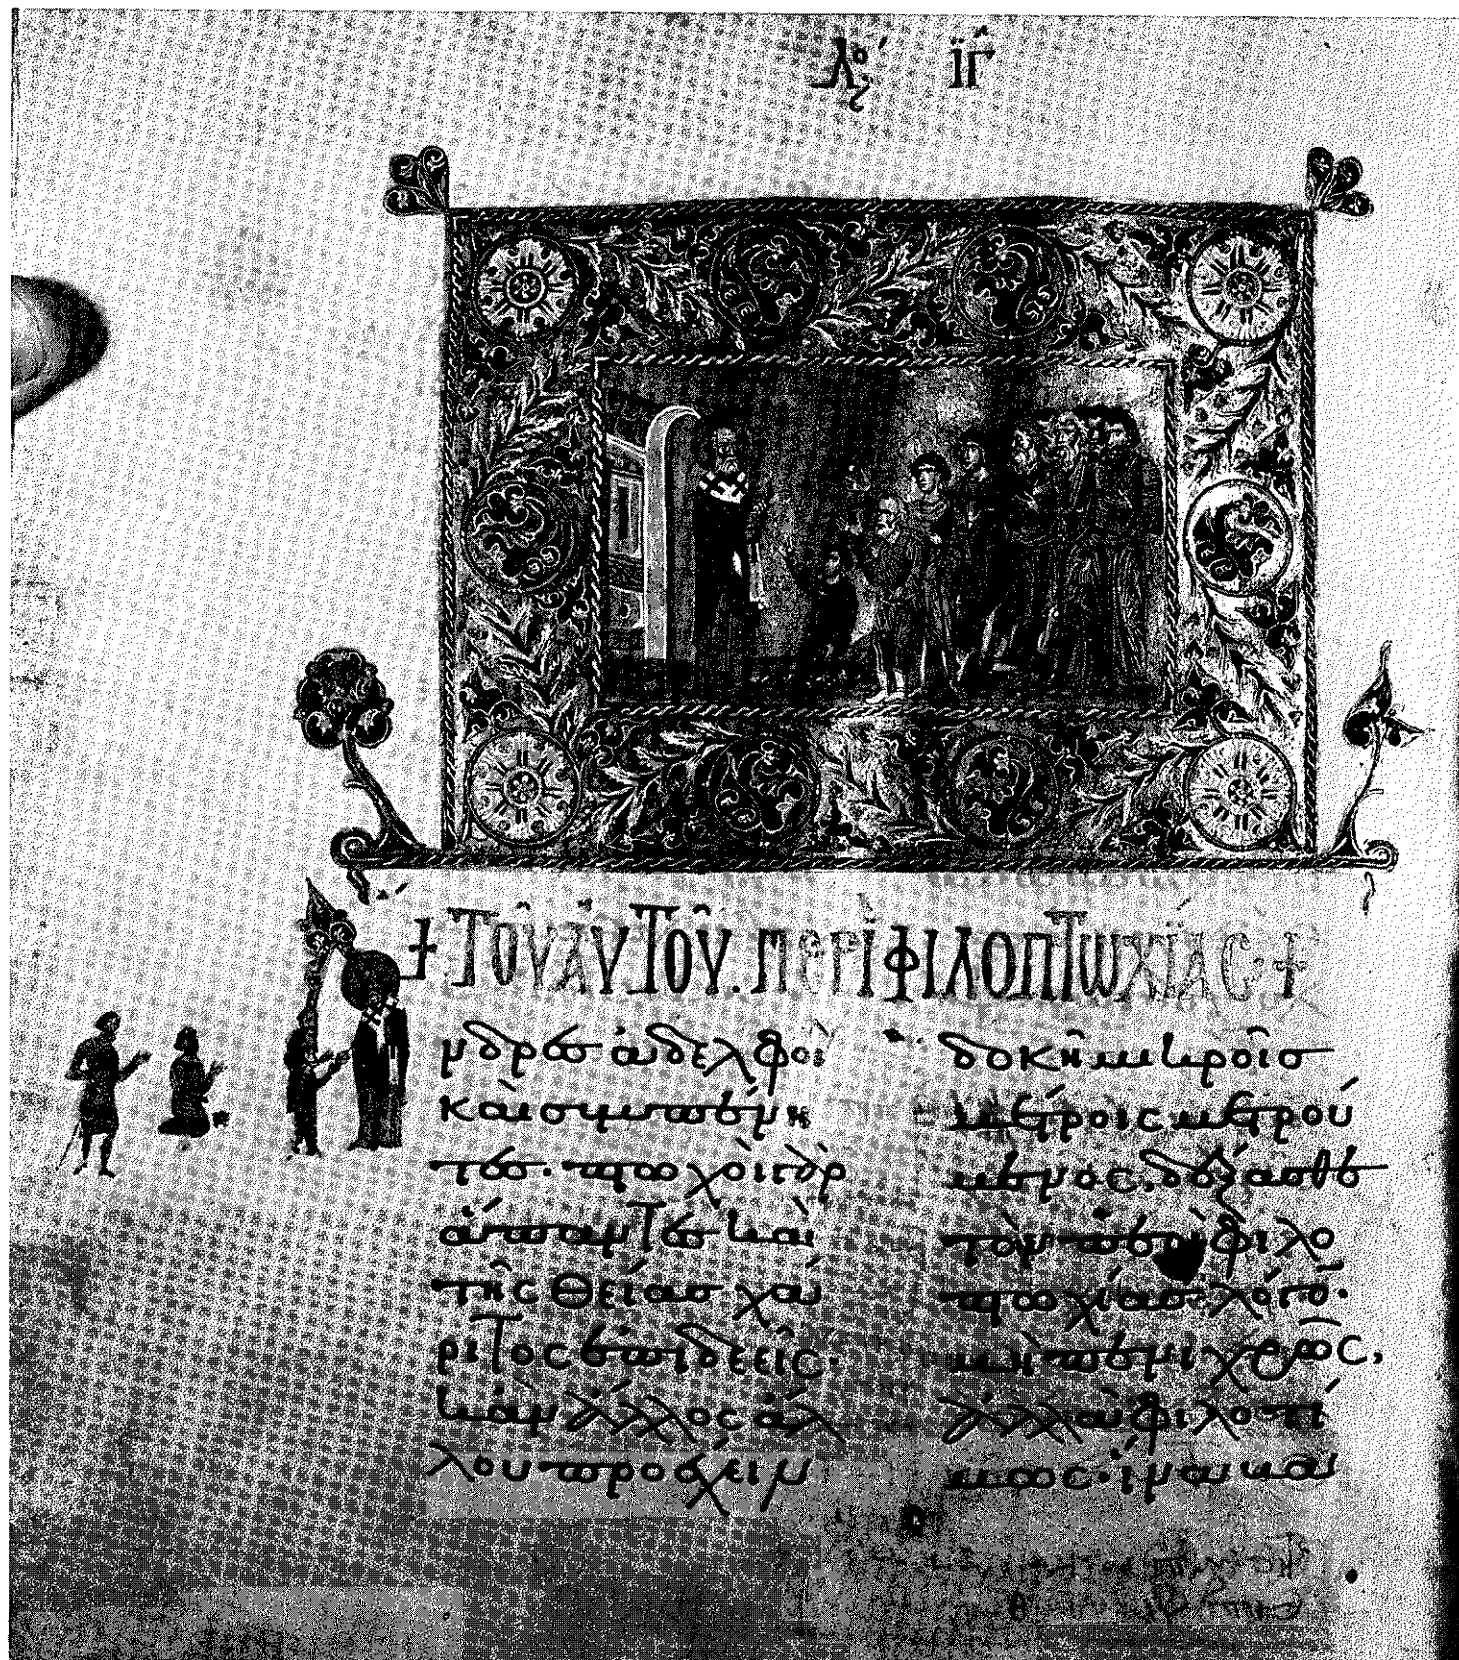 Λο´ ΪΓ
+ ΤΟΥ ΑΥΤΟΥ. ΠΕΡΙ ΦΙΛΟΠΤΩΧΙΑΣ +
νδρεσ ἀδελφοι
καὶ συμπένη
τεσ· πτωχοὶ γὰρ
ἅπαντεσ καὶ
τῆς θείασ χά
ριτος ἐπιδεεῖς·
κἂν ἄλλος ἄλ
λου προέχειν
δοκῆ μικροῖσ
μέτροις μετρού
μενος, δέξασθε
τὸν περὶ φιλο
πτωχίασ λόγον·
μὴ πενιχρῶς,
ἀλλὰ φιλοτί
μως· ἵνα καὶ